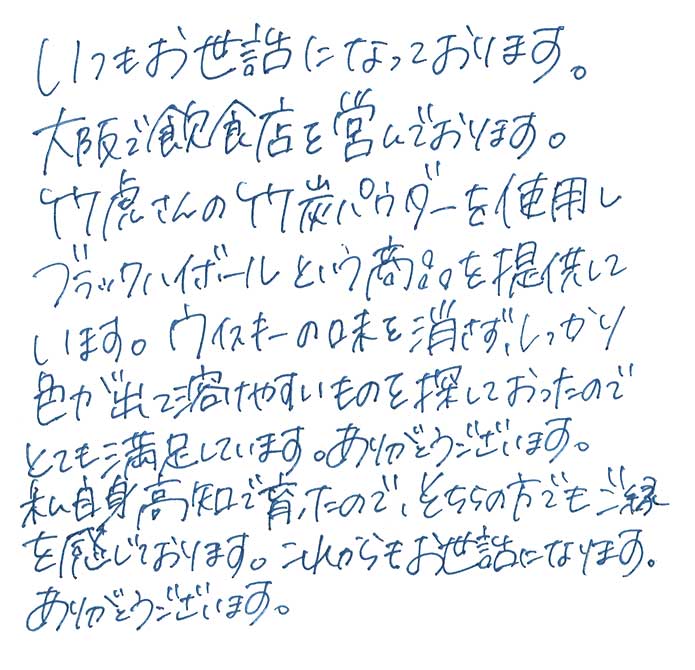 いつもお世話になっております。
大阪で飲食店を営んでおります。
竹虎さんの竹炭パウダーを使用し
ブラックハイボールという商品を提供して
います。ウイスキーの味を消さず、しっかり
色が出て溶けやすいものを探しておったので
とても満足しています。ありがとうございます。
私自身高知で育ったので、そちらの方でもご縁
を感じております。これからもお世話になります。
ありがとうございます。